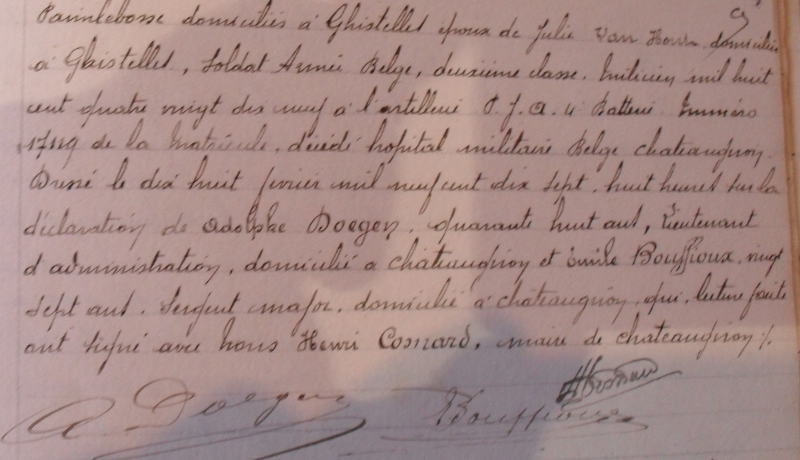 Pannlebosse domiciliés à Ghistelles époux de Julie Van Houn domiciliée
à Ghistelles, Soldat Armée Belge, deuxième classe. Milicien mil huit
cent quatre vingt dix neuf à l'artillerie P. J. A. 4 Batterie Numéro
17119 de la Matricule, décédé hopital militaire Belge chateaugnon.
Dressé le dix huit février mil neuf cent dix sept. huit heures sur la
déclaration de Adolphe Doegen, quarante huit ans, Lieutenant
d'administration, domicilié a chateaugnon et Emile Bouffioux, vingt
sept ans. Sergent major, domicilié à chateaugnon, qui, lecture faite
ont signé avec nous Henri Cosnard, maire de chateaugnon ./.
A. Doegen Bouffioux HCosnard